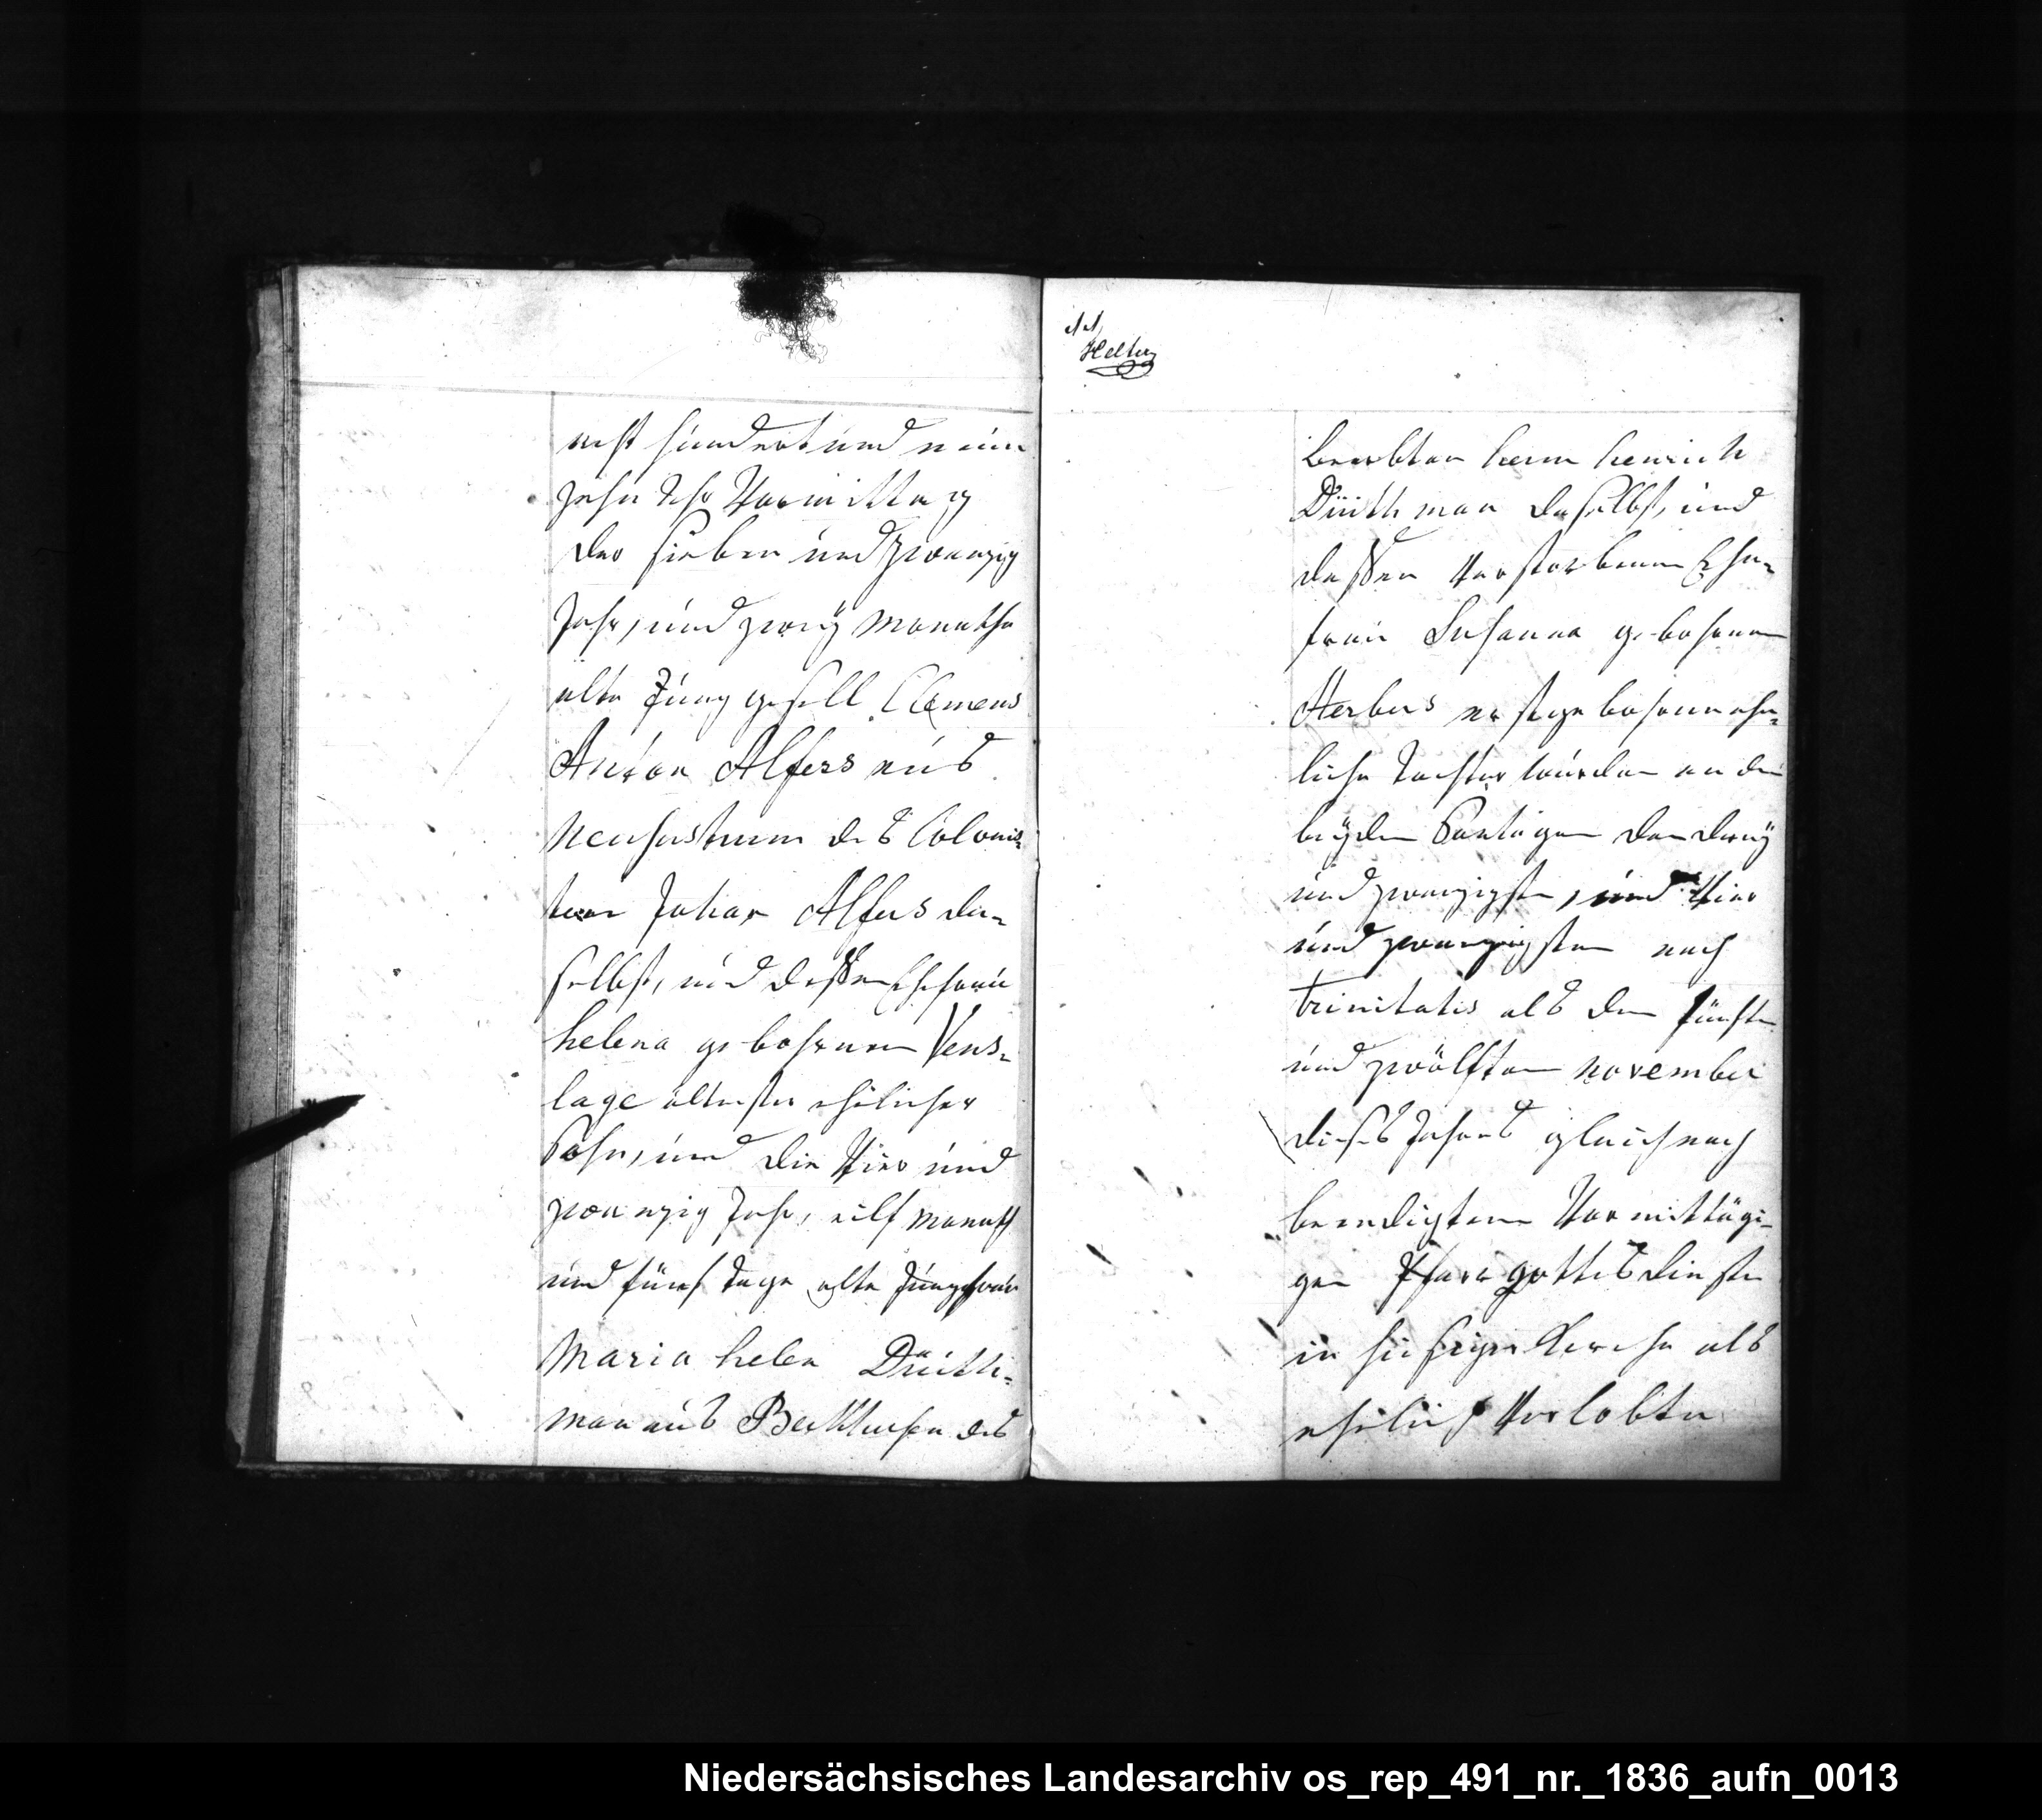 acht hundert und neun
zehn Uhr Vormittag
der sieben und zwanzig
Jahr, und zweÿ Monathe
alte Junggesell Clemens
Anton Alfers aus
Neusustrum des Colonis=
ten Johan Alfers da=
selbst, und dessen Ehefrau
helena gebohrnen Vens=
lage ältester ehelicher
Sohn, und die Vier und
zwanzig Jahr, eilf Monath
und fünf Tage alte Jungfrau
Maria helen Düth=
man aus des
11,
Erbbten herm henrich
Düthman daselbst, und
dessen Verstorbenen Ehe=
frau Susanna gebohrnen
Herbers erstgebohrne ehe=
liche Tochter wurden an den
beÿden Sontagen den dreÿ
und zwanzigsten, und Vier
und zwanzigsten nach
trinitatis als den fünften
und zwölften november
dieses Jahres gleich nach
beendigtem Vormittägi=
gen Pfarrgottesdienste
in hiesiger Kirche als
ehelich Verlobte
Niedersächsisches Landesarchiv os_rep_491_nr._1836_aufn_0013